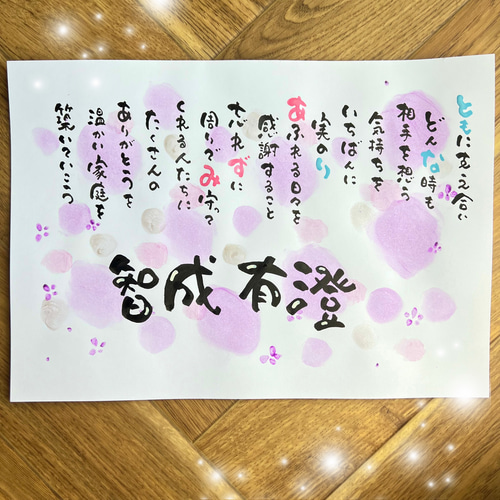 ともに支え合い
どんな時も
相手を想う
気持ちを
いちばんに
実のり
あふれる日々を
感謝すること
忘れずに
周りがみ守って
くれる人たちに
たくさんの
ありがとうを
温かい家庭を
築いていこう
智成 有澄